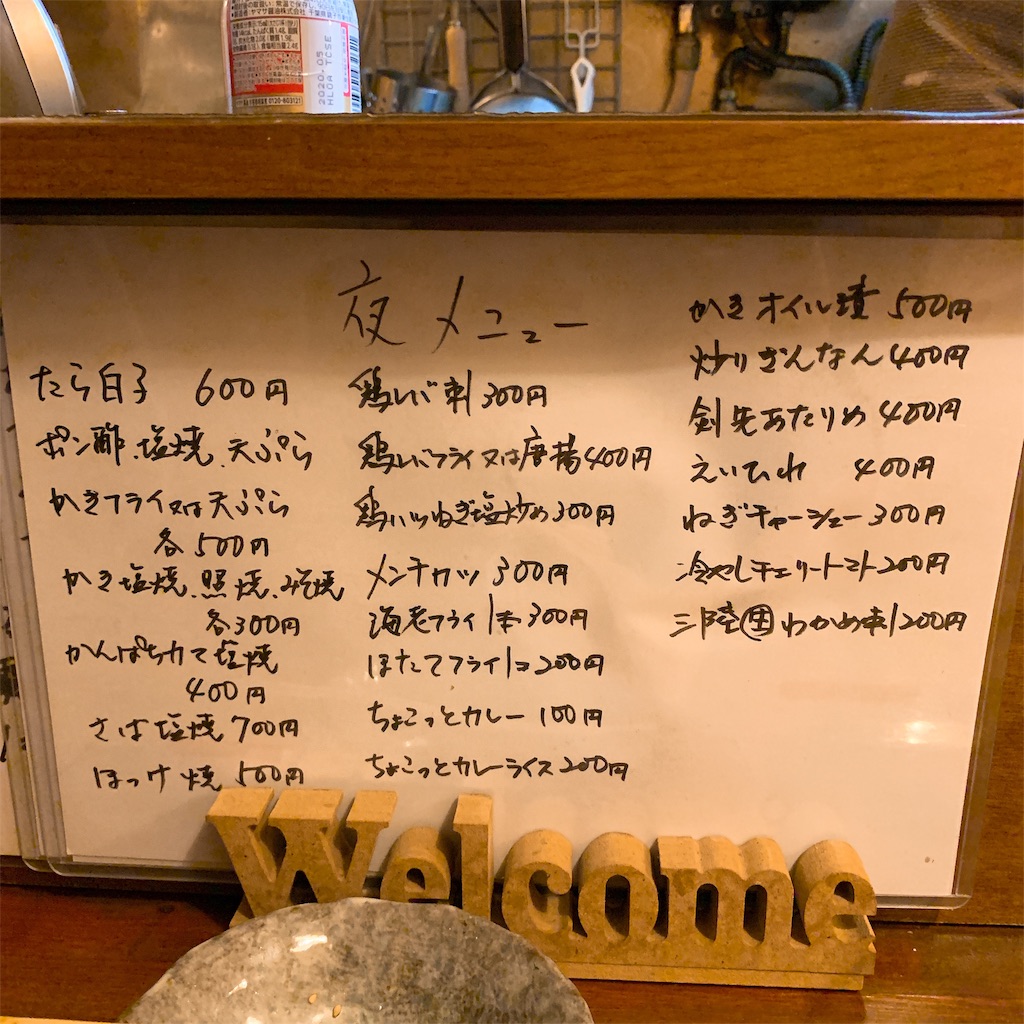 2020.05
HLOA TCSE
夜メニュー
たら白子 600円
ポン酢、塩焼、天ぷら
かきフライ又は天ぷら
各500円
かき塩焼、照焼、みそ焼
各300円
かんぱちカマ塩焼
400円
さば塩焼 700円
ほっけ焼 500円
鶏レバ刺 300円
鶏レバフライ又は唐揚 400円
鶏ハツねぎ塩炒め 300円
メンチカツ 300円
海老フライ1本 300円
ほたてフライ1コ 200円
ちょこっとカレー 100円
ちょこっとカレーライス 200円
かきオイル漬 500円
炒りぎんなん 400円
剣先あたりめ 400円
えいひれ 400円
ねぎチャーシュー 300円
冷やしチェリートマト 200円
三陸生わかめ刺 200円
Welcome